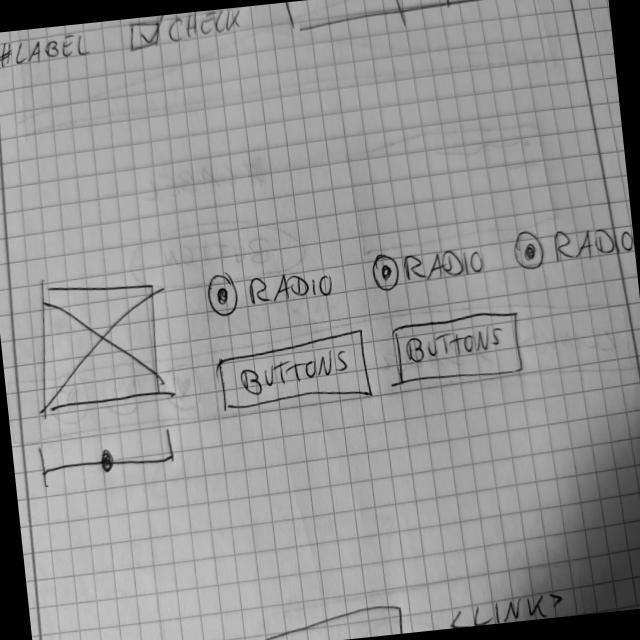 #LABEL ☑ CHECK
RADIO RADIO RADIO
BUTTONS BUTTONS
<LINK>